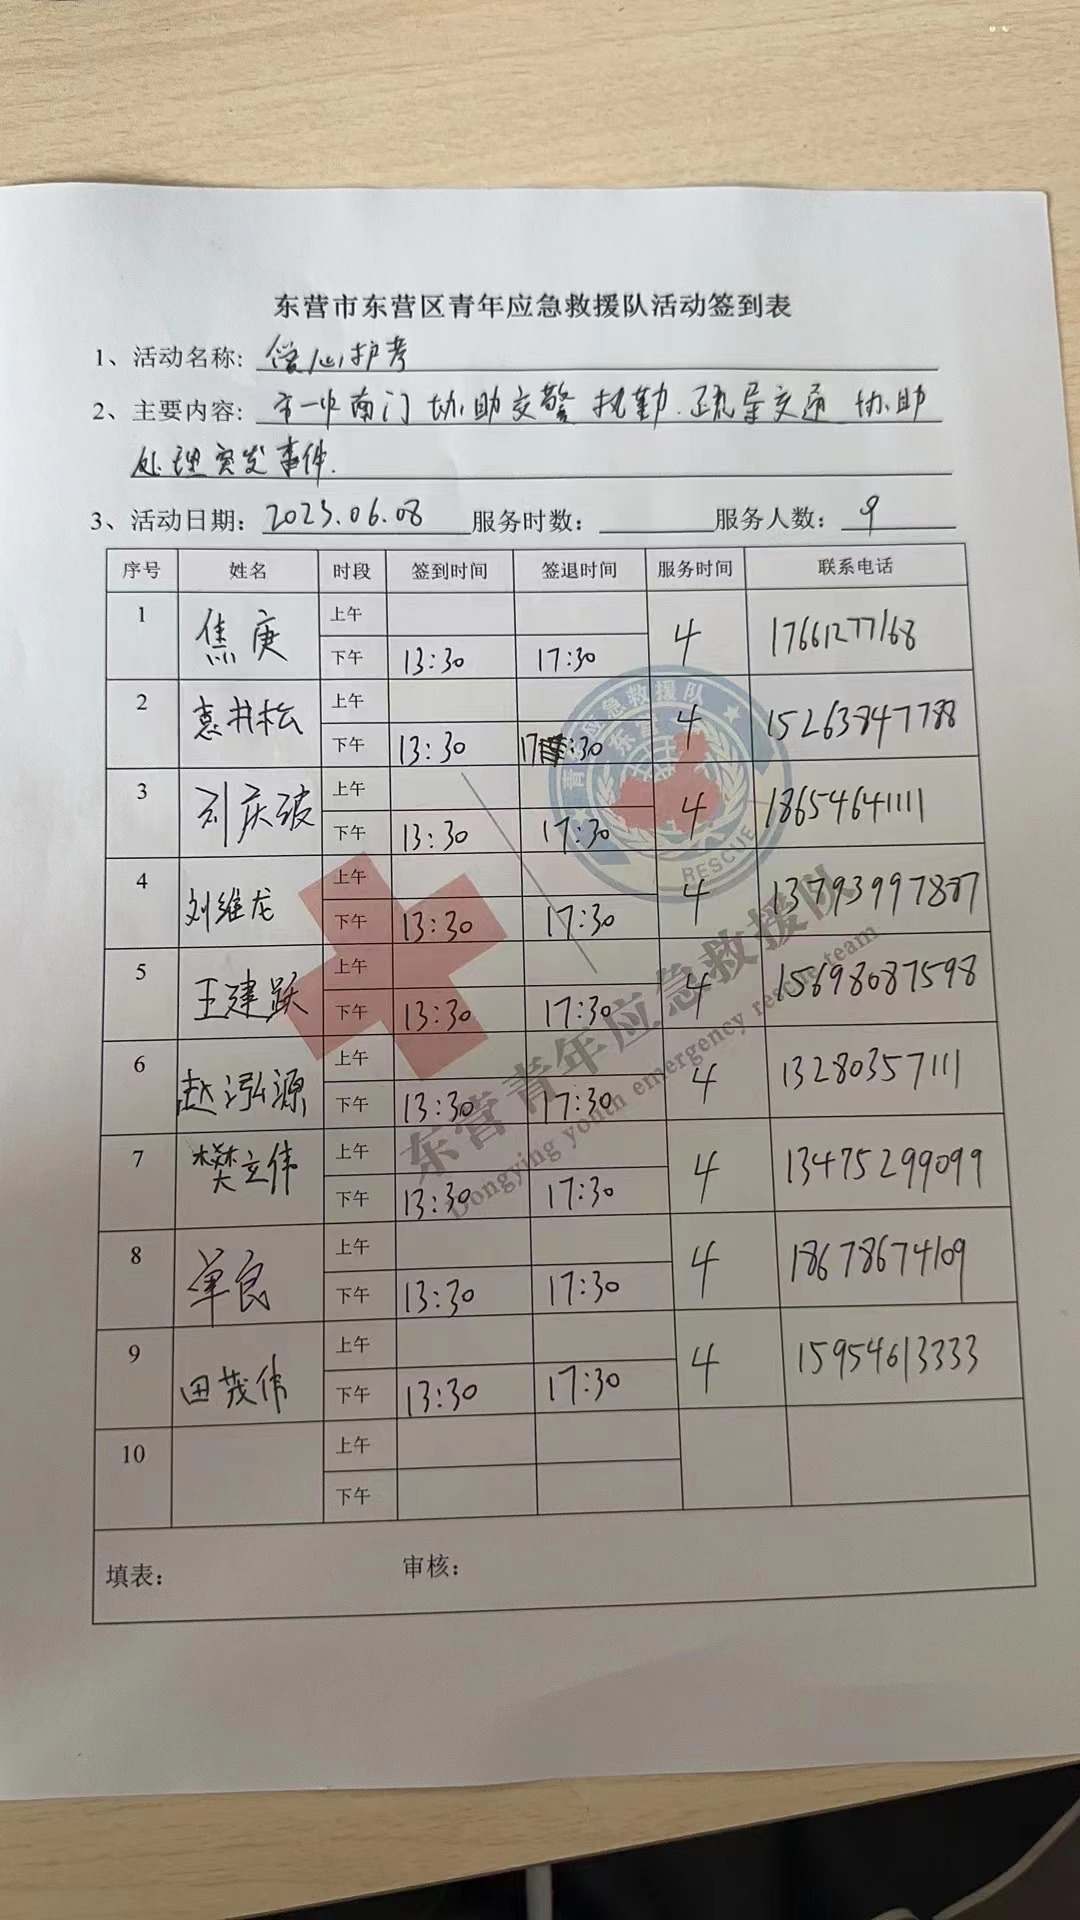 东营市东营区青年应急救援队活动签到表
1、活动名称: 爱心护考
2、主要内容: 市一中南门协助交警执勤.疏导交通 协助
处理突发事件.
3、活动日期: 2023.06.08 服务时数: 服务人数: 9
序号 姓名 时段 签到时间 签退时间 服务时间 联系电话
1 焦庚 上午 4 17661277168
下午 13:30 17:30
2 惠井松 上午 4 15263847788
下午 13:30 17:30
3 刘庆波 上午 4 18654641111
下午 13:30 17:30
4 刘维龙 上午 4 13793997887
下午 13:30 17:30
5 王建跃 上午 4 15698087598
下午 13:30 17:30
6 赵泓源 上午 4 13280357111
下午 13:30 17:30
7 樊立伟 上午 4 13475299099
下午 13:30 17:30
8 单良 上午 4 18678674109
下午 13:30 17:30
9 田茂伟 上午 4 15954613333
下午 13:30 17:30
10 上午
下午
填表: 审核:
青年应急救援队
东营
RESCUE
东营青年应急救援队
Dongying youth emergency rescue team